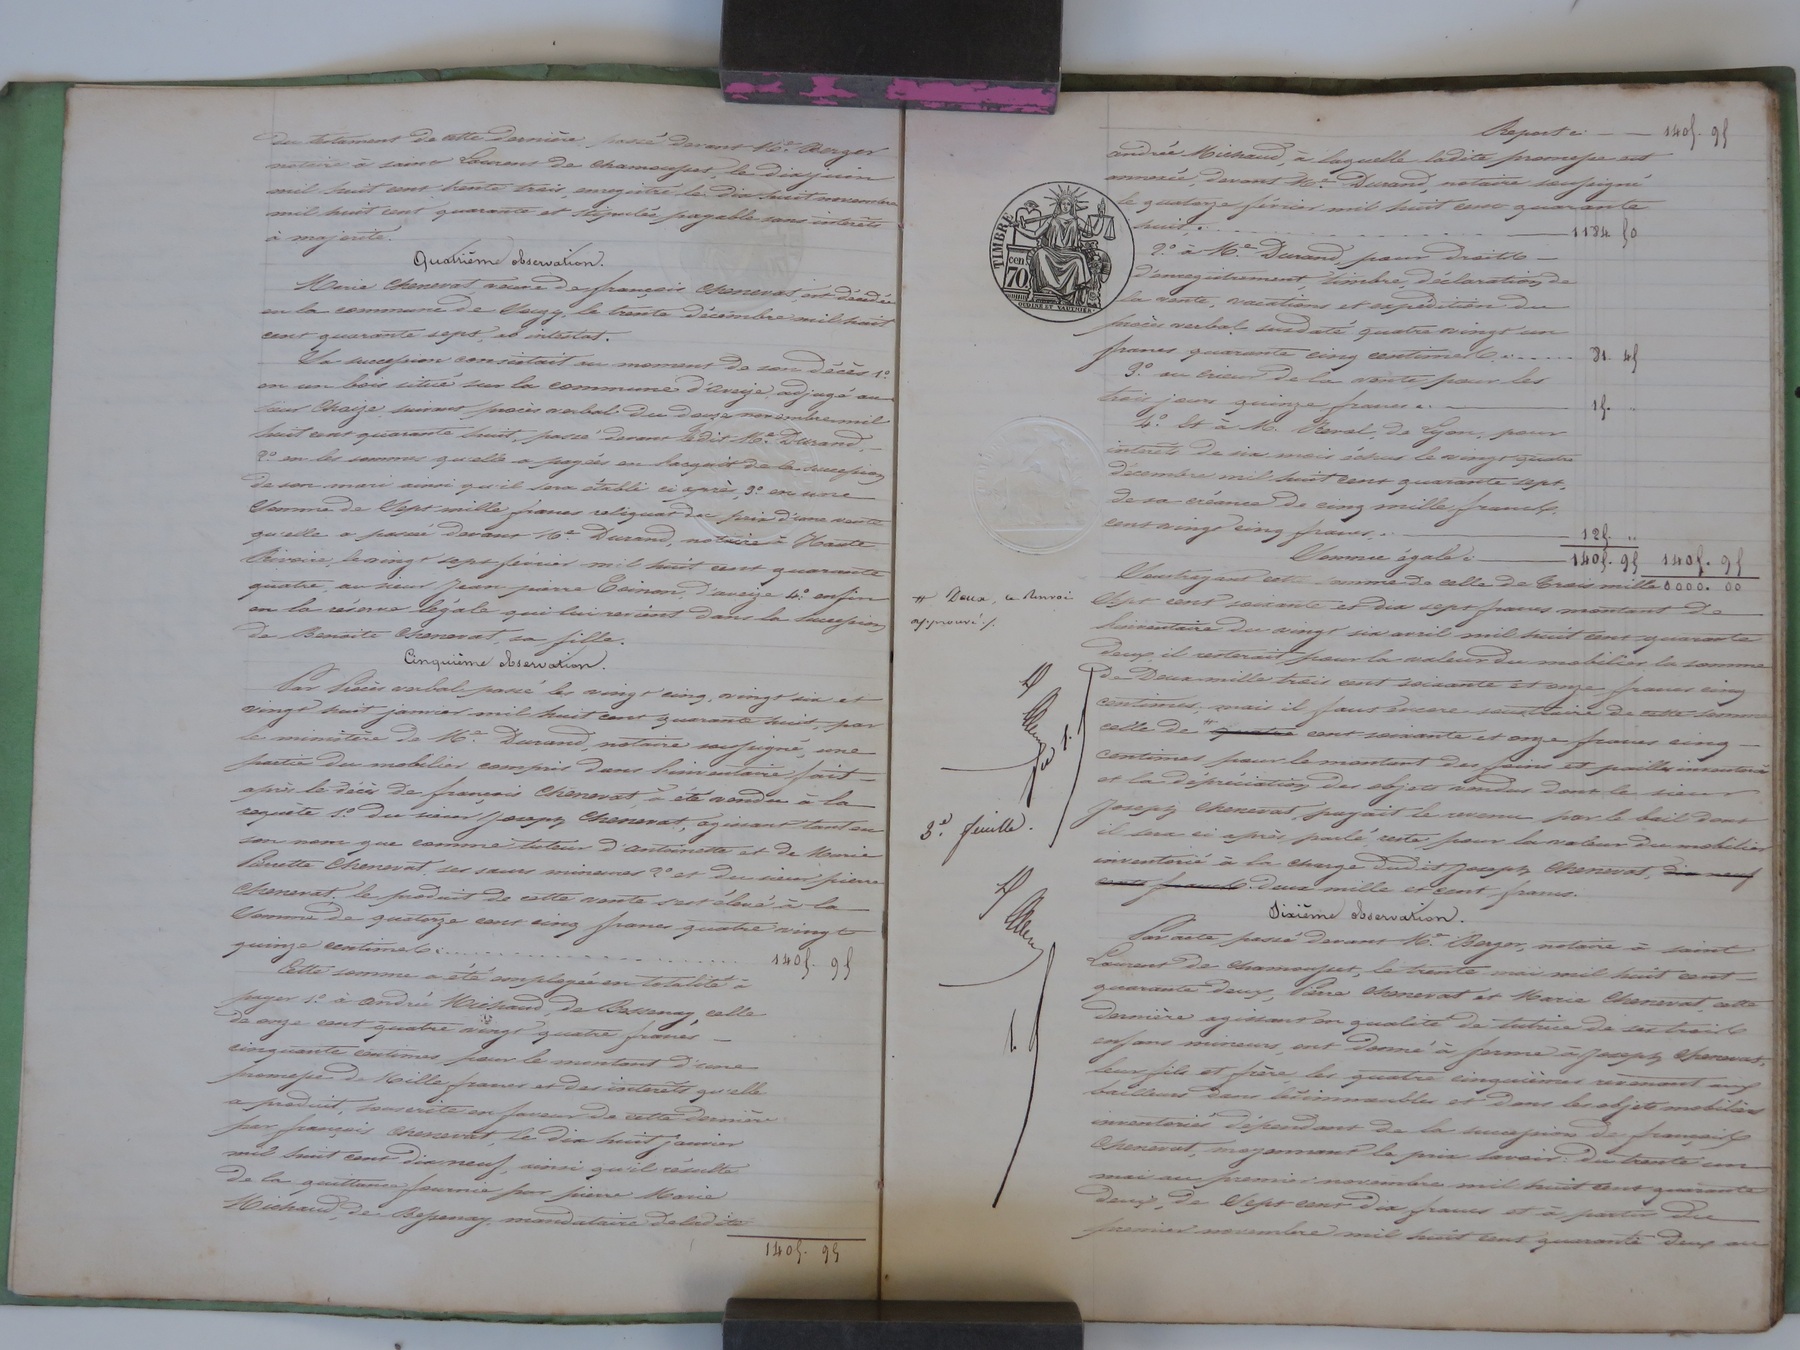 du testament de cette dernière, passé devant Me. Berger
notaire à saint Laurent de chamousset, le dix juin
mil huit cent trente trois, enregistré le dix huit novembre
mil huit cent quarante et stipulée payable sans intérêts
à majorité.
Quatrième observation.
Marie Chenevat veuve de françois Chenevat, est décédée
en la commune de le trente décembre mil huit
cent quarante sept, ab intestat.
Sa succession consistait au moment de son décès 1º.
en un bois situé sur la commune d'aveize, adjugé au
sieur Chaize suivant procès verbal du douze novembre mil
huit cent quarante huit, passé devant ledit Me. Durand,
2º en les sommes qu'elle a payées en l'acquit de la succession
de son mari ainsi qu'il sera établi ci après, 3º. en une
somme de Sept mille francs reliquat du prix d'une vente
qu'elle a passée devant Me. Durand, notaire à Haute
Rivoire, le vingt sept février mil huit cent quarante
quatre, au sieur Jean pierre d'aveize 4º. enfin
en la réserve légale qui lui revient dans la succession
de Benoite Chenevat, sa fille.
Cinquième observation.
Par Procès verbal passé les vingt cinq, vingt six et
vingt huit janvier mil huit cent quarante huit, par
le ministère de Me. Durand, notaire soussigné, une
partie du mobilier compris dans l'inventaire fait
après le décès de françois Chenevat, a été vendu à la
requête 1º. du sieur Joseph Chenevat, agissant tant en
son nom que comme tuteur d'antoinette et de Marie
Pierrette Chenevat, ses sœurs mineures 2º. et du sieur pierre
Chenevat. le produit de cette vente s'est élevé à la
Somme de quatorze cent cinq francs quatre vingt
quinze centimes . . . . . . 1405. 95
Cette somme a été employée en totalité à
payer 1º. à andrée Michaud, de Bessenay celle
de onze cent quatre vingt quatre francs
cinquante centimes pour le montant d'une
promesse de Mille francs et des intérêts qu'elle
a produit, souscrite en faveur de cette dernière
par françois Chenevat, le dix huit janvier
mil huit cent dix neuf, ainsi qu'il résulte
de la quittance fournie par pierre Marie
Michaud, de Bessenay, mandataire de ladite
1405. 95
Report : 1405. 95
andrée Michaud, à laquelle ladite promesse est
annexée, devant Me. Durand, notaire soussigné
le quatorze février mil huit cent quarante
huit . . . . . . 1184 50
2º. à Me. Durand, pour droits
d'enregistrement, timbre, déclaration de
la vente, vacations et expédition du
procès verbal susdaté quatre vingt un
francs quarante cinq centimes . . . . 81. 45
3º. au crieur de la vente pour les
trois jours quinze francs . 15. "
4º. Et à M. Reval, de Lyon, pour
intérêts de six mois échus le vingt quatre
décembre mil huit cent quarante sept,
de sa créance de cinq mille francs,
cent vingt cinq francs . 125. "
Somme égale : 1405. 95 1405. 95
0000. 00
Soustrayant cette somme de celle de Trois mille
Sept cent soixante et dix sept francs montant de
l'inventaire du vingt six avril mil huit cent quarante
deux, il resterait pour la valeur du mobilier la somme
de Deux mille trois cent soixante et onze francs cinq
centimes, mais il faut encore soustraire de cette somme
celle de # quatre cent soixante et onze francs cinq
centimes pour le montant des foins et pailles inventoriés
et la dépréciation des objets vendus dont le sieur
Joseph Chenevat, payait le revenu par le bail dont
il sera ci après parlé, reste pour la valeur du mobilier
inventorié à la charge dudit Joseph Chenevat, dix neuf
cents francs. deux mille et cent francs.
# Deux, ce Renvoi
approuvé
3e. feuille.
Sixième observation.
Par acte passé devant Me. Berger, notaire à saint
Laurent de chamousset, le trente mai mil huit cent
quarante deux, Pierre Chenevat et Marie Chenevat, cette
dernière agissant en qualité de tutrice de ses trois
enfans mineurs, ont donné à ferme à Joseph Chenevat,
leur fils et frère les quatre cinquièmes revenant aux
bailleurs dans les immeubles et dans les objets mobiliers
inventoriés dépendant de la succession de françois
Chenevat, moyennant le prix savoir : du trente un
mai au premier novembre mil huit cent quarante
deux, de Sept cent dix francs et à partir du
premier novembre mil huit cent quarante deux au
TIMBRE
70 cen